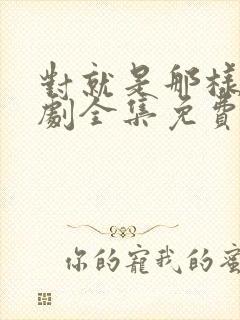 對就是那樣
劇全集免費
你的寵我的蜜